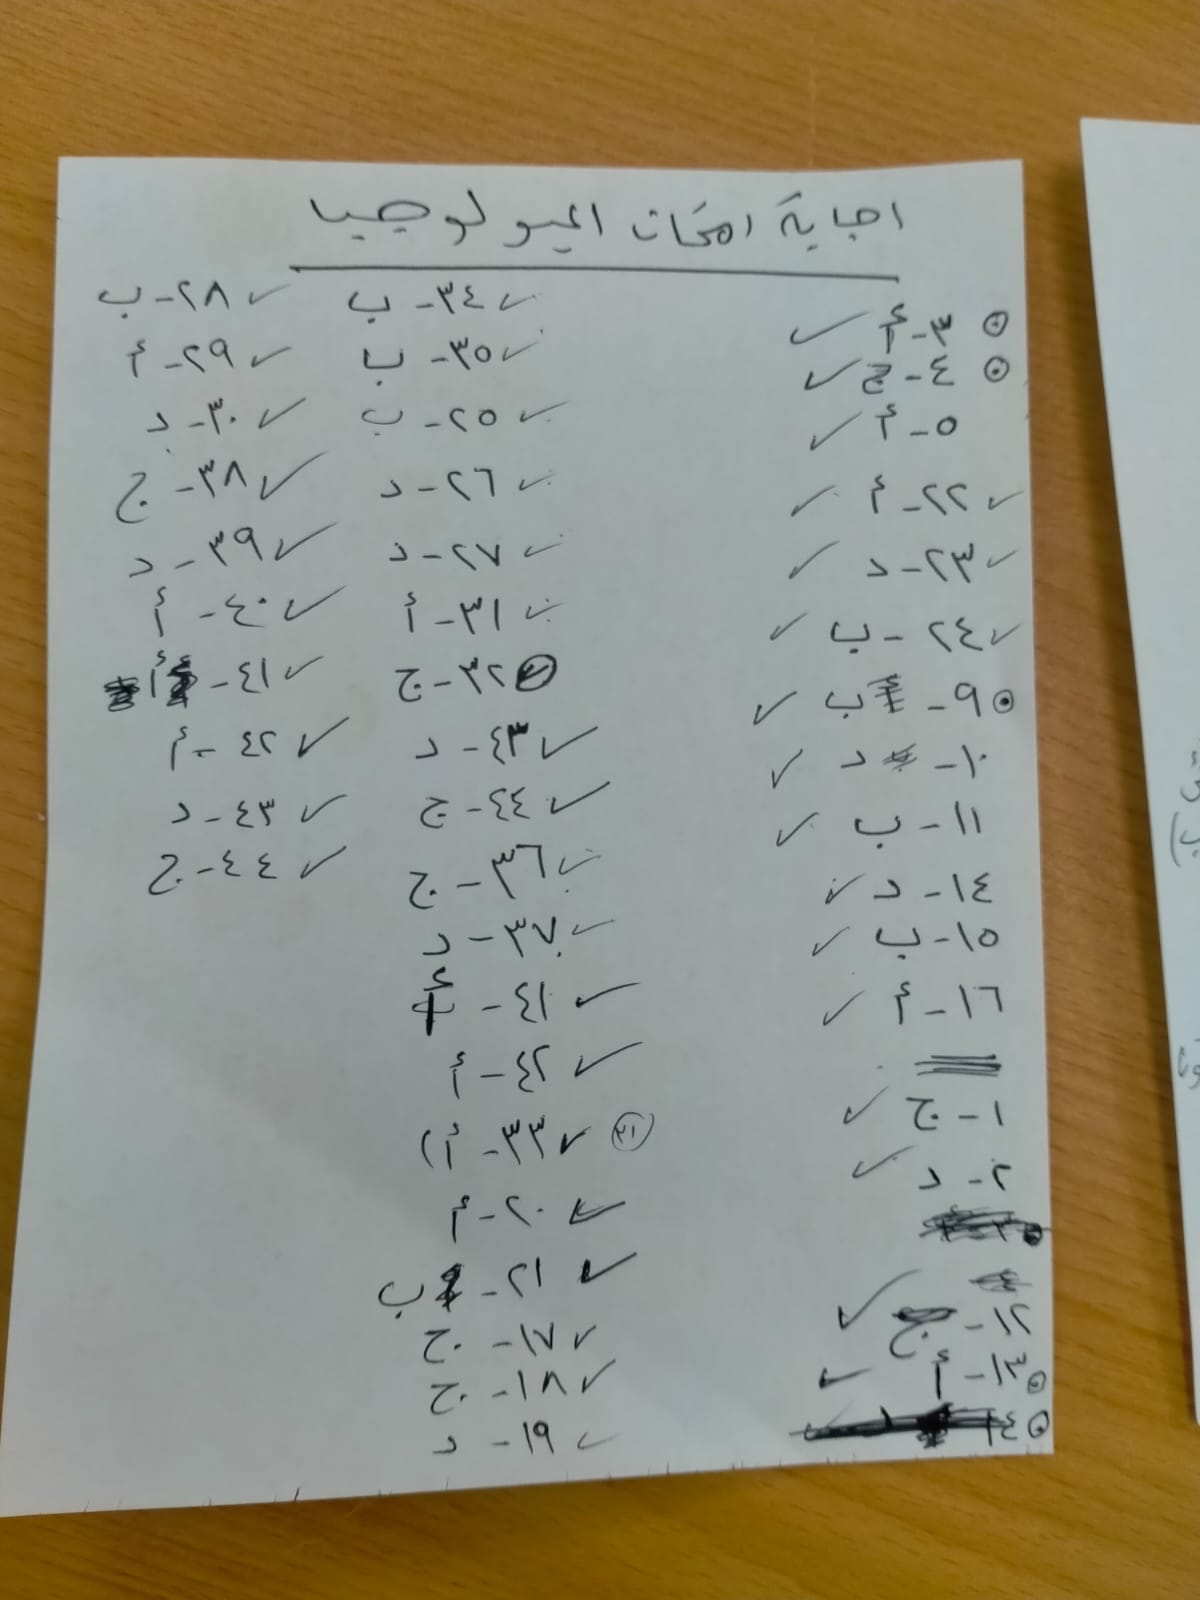 اجابة امتحان الجيولوجيا
٣- أ
٤- ج
٥- أ
٢٢- أ
٢٣- د
٢٤- ب
٩- ب
١٠- د
١١- ب
١٤- د
١٥- ب
١٦- أ
١- ج
٢- د
١٢- ج
١٣- أ
٣٤- ب
٣٥- ب
٢٥- ب
٢٦- د
٢٧- د
٣١- أ
٣٢- ج
٤٣- د
٤٤- ج
٣٦- ج
٣٧- د
٤١- أ
٤٢- أ
٣٣- أ)
٢٠- أ
٢١- ب
١٧- ج
١٨- ج
١٩- د
٢٨- ب
٢٩- أ
٣٠- د
٣٨- ج
٣٩- د
٤٠- أ
٤١- أ
٤٢- أ
٤٣- د
٤٤- ج